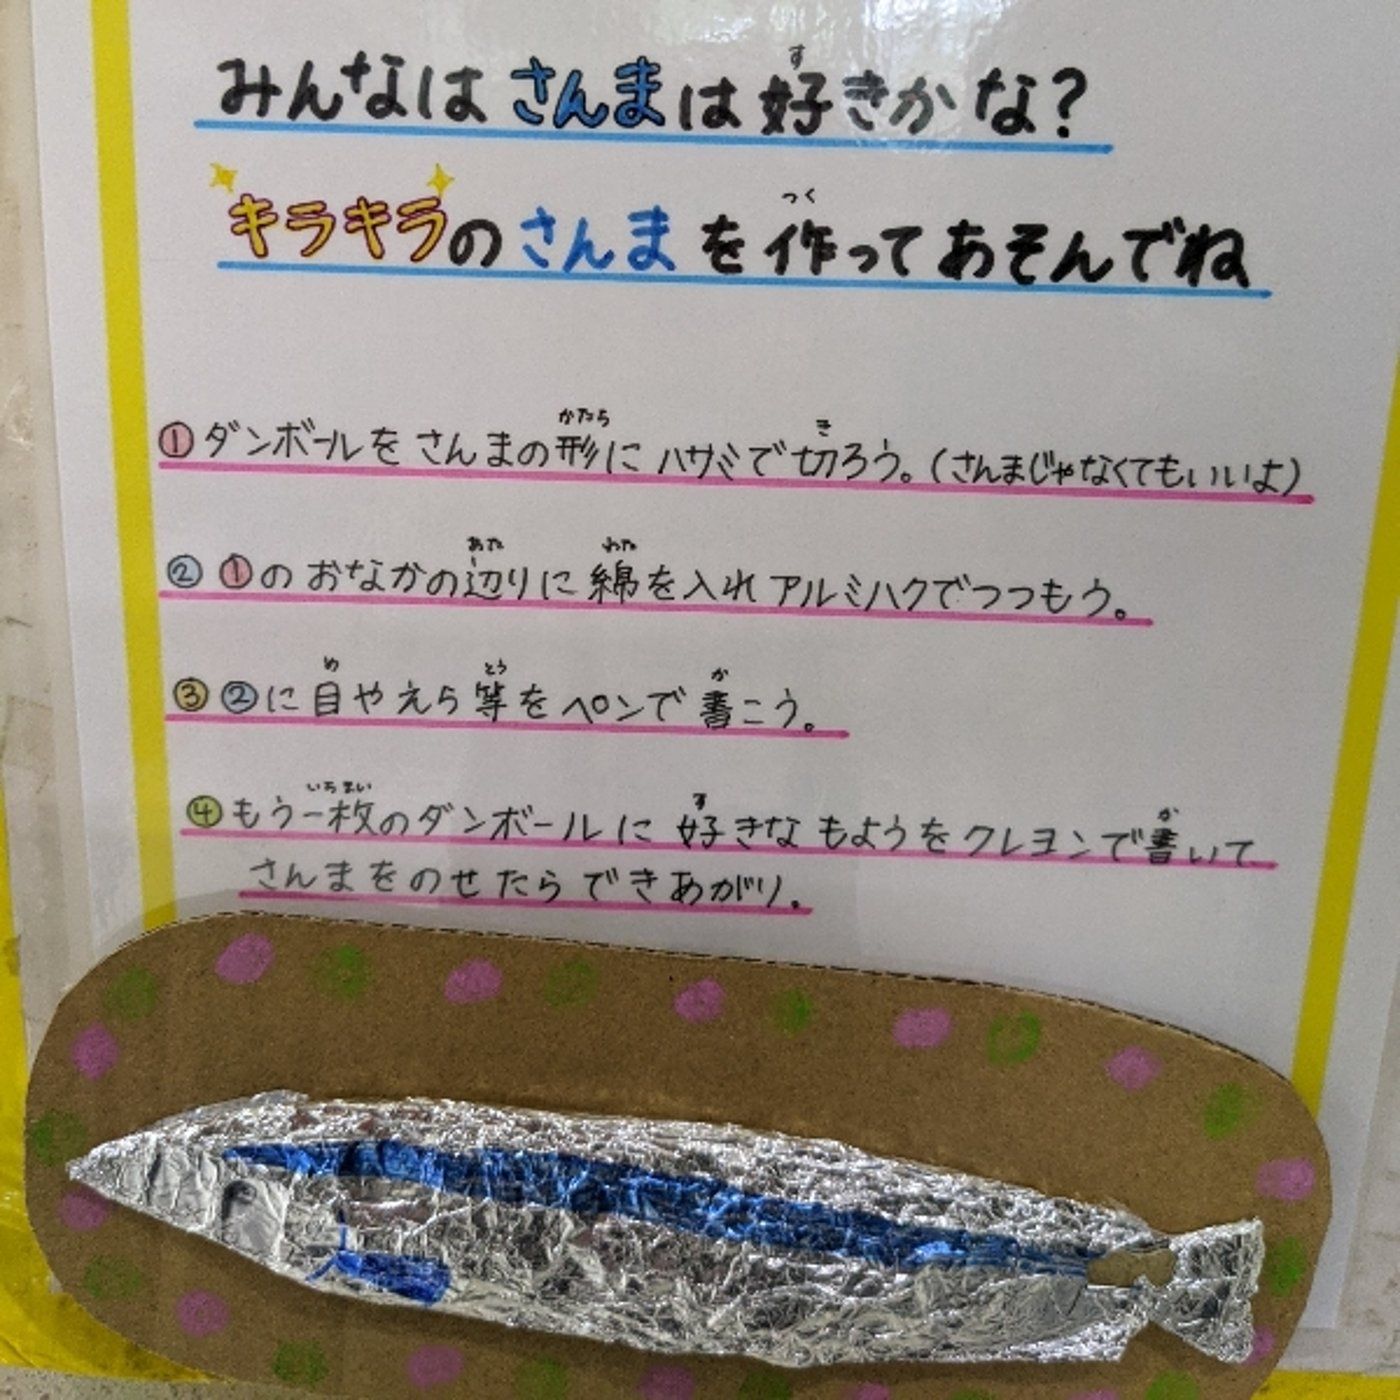 みんなはさんまは好きかな?
キラキラのさんまを作ってあそんでね
①ダンボールをさんまの形にハサミで切ろう。(さんまじゃなくてもいいよ)
②①のおなかの辺りに綿を入れアルミハクでつつもう。
③②に目やえら等をペンで書こう。
④もう一枚のダンボールに好きなもようをクレヨンで書いて
さんまをのせたらできあがり。